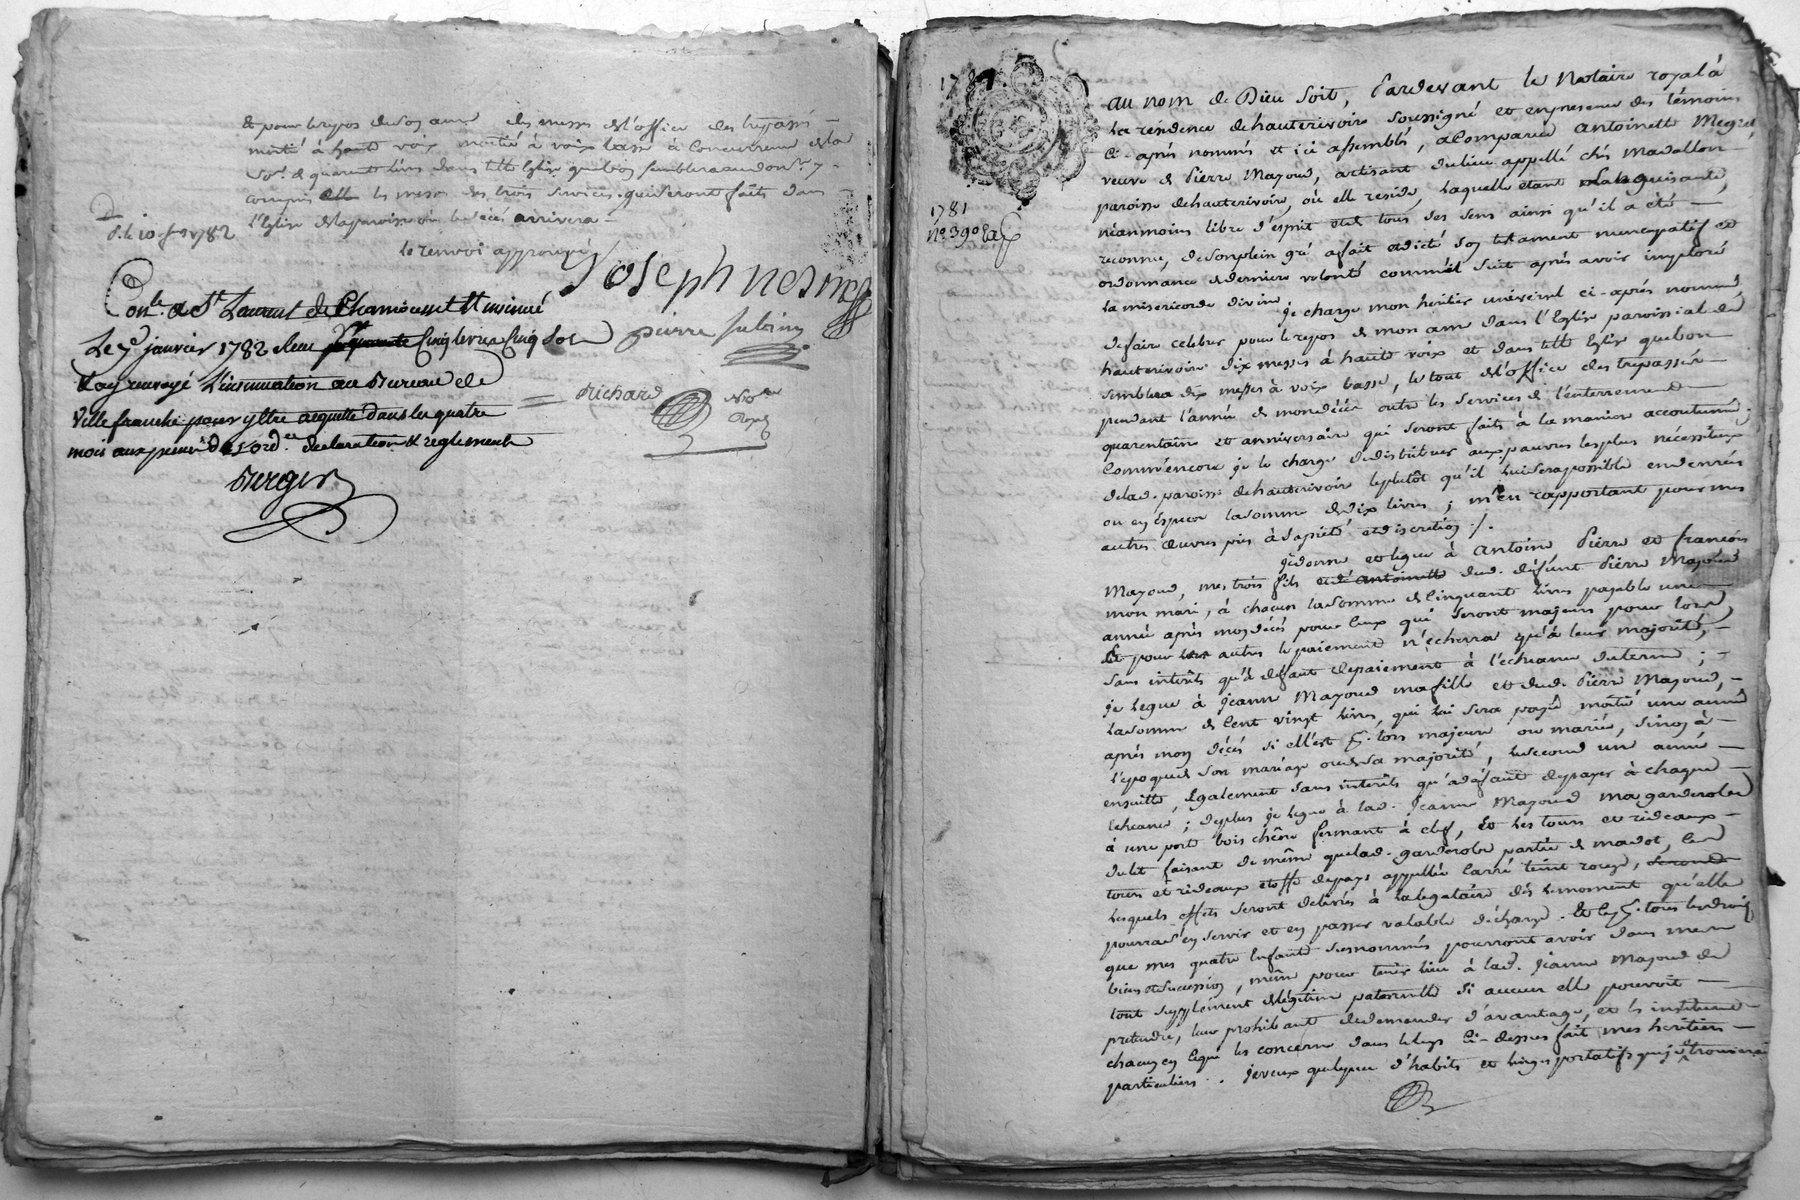 & pour le repos de son ame des messes de l'office des trépassés
moitié à haute voix moitié à voix basse à concurrence de la
de quarante livres dans telle Eglise que bon semblera aud. y
compris les messes des trois services qui seront faits dans
l'Eglise de la paroisse ou le décès arrivera
D. le 10 1782
le renvoi approuvé
Joseph nesme
Con.le à St Laurent de Chamousset & insinué
Le 7e janvier 1782 Reçu Cinq livres Cinq sols
& ay renvoyé L'insinuation au Bureau de
Villefranche pour y être acquitté dans les quatre
mois aux peines des ord.ces declarations & reglements
Berger
pierre subrin
Richard
No.re
Royal
1781
1781
No. 390
Au nom de Dieu soit, Pardevant le Notaire royal à
la résidence de hauterivoire soussigné et en presence des témoins
ci-après nommés et ici assemblés, a Comparu Antoinette
veuve de Pierre Mayoud, artisant du lieu appellé chés Madallon
paroisse de hauterivoire, où elle reside, Laquelle étant Languissante,
néanmoins libre d'esprit et de tous ses sens ainsi qu'il a été
reconnu, de son plein gré a fait et dicté son testament nuncupatif et
ordonnance de derniere volonté comme il suit après avoir imploré
la misericorde divine
je charge mon héritier universel ci-après nommé
de faire celebrer pour le repos de mon ame dans l'Eglise paroissiale de
hauterivoire dix messes à haute voix et dans telle Eglise que bon
semblera dix messes à voix basse, le tout de l'office des trepassés
pendant l'année de mon décès outre les services de l'enterrement
quarantaine et anniversaire qui seront faits à la maniere accoutumée.
Comme encore je le charge de distribuer aux pauvres les plus nécessiteux
de lad. paroisse de hauterivoire le plutôt qu'il lui sera possible en denrées
ou en especes la somme de dix livres; m'en rapportant pour mes
autres œuvres pies à sa piété et discretion ./.
je donne et legue à Antoine, Pierre et françois
Mayoud, mes trois fils et d'antoinette dud. défunt Pierre Mayoud
mon mari, à chacun la somme de Cinquante livres payable une
année après mon décès pour Ceux qui seront majeurs pour lors,
Et pour les autres le paiement n'écherra qu'à leur majorité,
sans intérêts qu'à défaut de paiement à l'échéance du terme;
je legue à jeanne Mayoud ma fille et dud. Pierre Mayoud,
la somme de Cent vingt livres, qui lui sera payée moitié une année
après mon décès si elle est p. lors majeure ou mariée, sinon à
l'epoque de son mariage ou de sa majorité, le second une année
ensuitte, Egalement sans intérêts qu'à défaut de payer à chaque
echeance; de plus je legue à lad. jeanne Mayoud ma garderobe
à une porte bois chêne fermant à clef, Et les tours et rideaux
de lit faisant de même que lad. garderobe partie de ma dot, les
tours et rideaux étoffe de pays appellée Carré teint rouge,
lesquels effets seront delivrés à la legataire dès le moment qu'elle
pourra s'en servir et en passer valable décharge. Et Ce p. tous les droits
que mes quatre Enfants susnommés pourront avoir dans mes
biens et succession, même pour tenir lieu à lad. jeanne Mayoud de
tout supplément de légitime paternelle si aucun elle pouvoit
prétendre, leur prohibant de demander d'avantage, et les instituant
chacun en Ce qui les concerne dans le legs Ci-dessus fait mes héritiers
particuliers.. je veux que le peu d'habits et linges portatifs que je